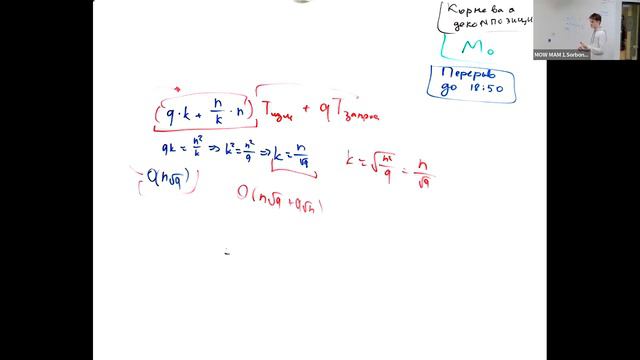 Корневая
декомпозиция
Mo
Перерыв
до 18:50
MOW MAM 1.Sorbon...
*
(q·k + n/k · n) Tизм + qTзапрос
qk = n²/k ⇒ k² = n²/q ⇒ k = n/√q
k = √(n²/q) = n/√q
O(n√q)
O(n√q + q√n)